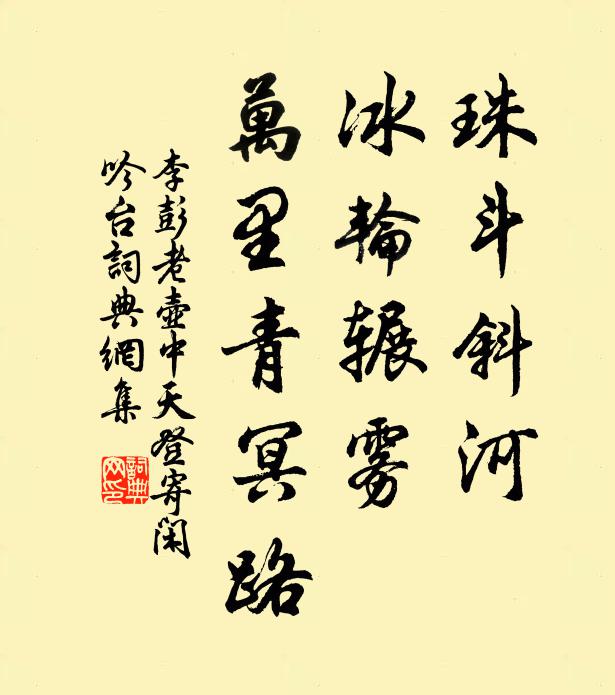 珠斗斜河
冰輪辗雾
萬里青冥路
李彭老壺中天登寄閑
吟台詞典網集
詞典
网印